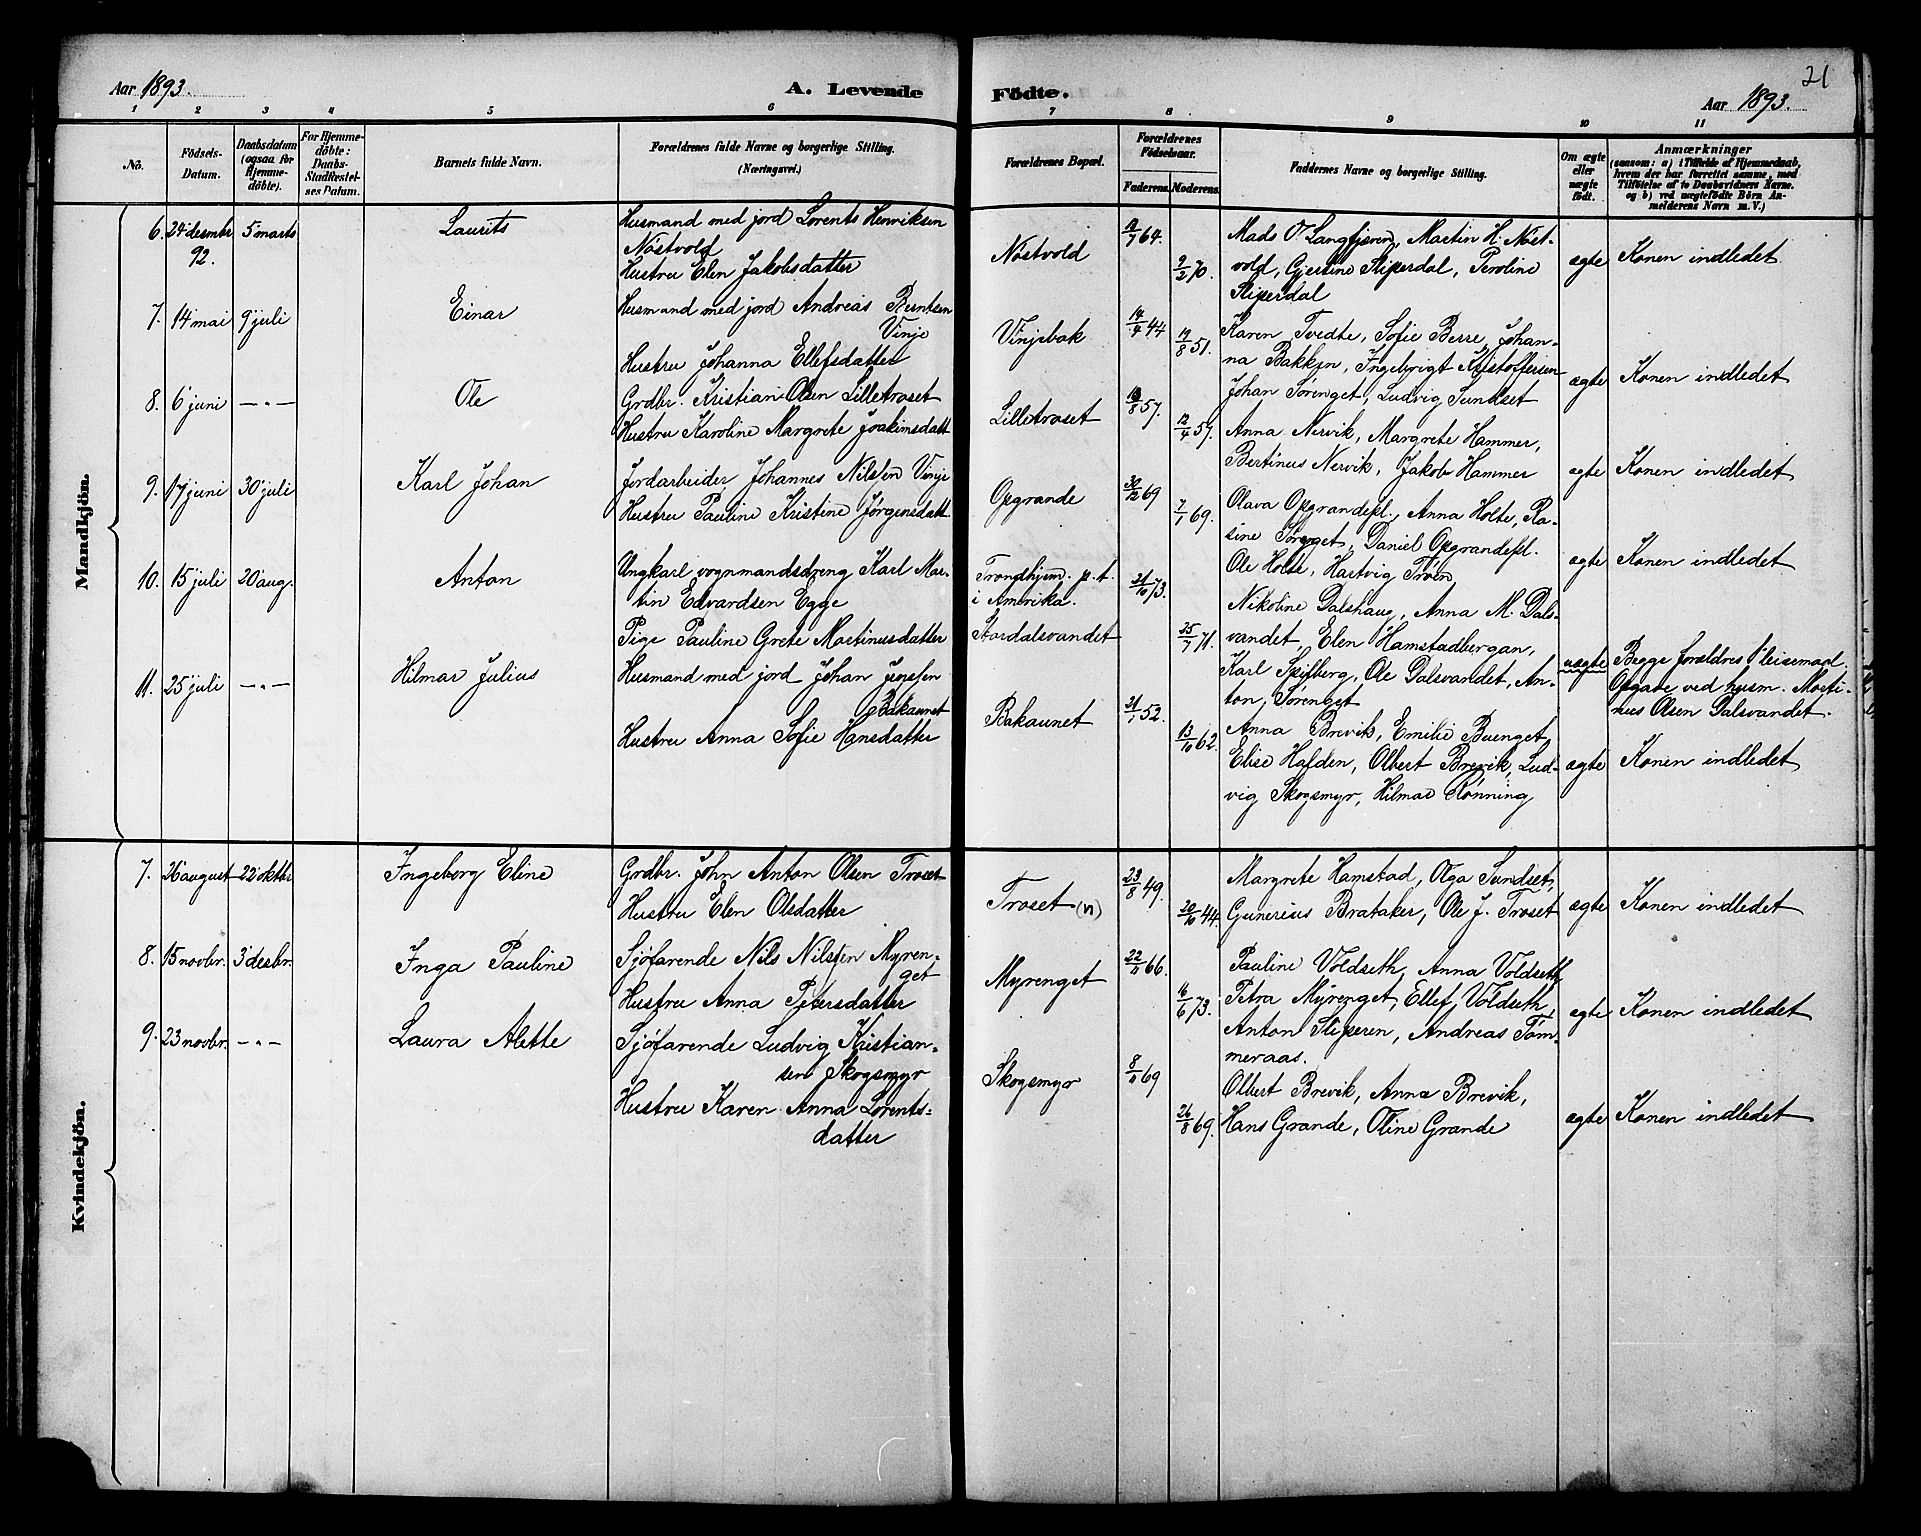 21
Aar 1893. A. Levende Födte. Aar 1893.
1 2 3 4 5 6 7 8 9 10 11
No. Födsels-Datum. Daabsdatum (ogsaa for Hjemmedöbte). For Hjemmedöbte: Daabs-Stadfæstelses Datum. Barnets fulde Navn. Forældrenes fulde Navne og borgerlige Stilling. (Næringsvei.) Forældrenes Bopæl. Forældrenes Födselsaar. Faderens. Moderens. Faddernes Navne og borgerlige Stilling. Om ægte eller uægte födt. Anmærkninger (saasom: a) i Tilfælde af Hjemmedaab, hvem der har forrettet samme, med Tilföielse af to Daabsvidners Navne. og b) ved uægtefödte Börn Anmelderens Navn m. V.)
Mandkjön.
6. 24 desmbr 92. 5 marts Laurits
Husmand med jord Lorents Henriksen
Nöstvold
Hustru Elen Jakobsdatter
Nöstvold 64. 9/2 70.
Mads O. Langfjæren, Martin H. Nöst-
vold, Gjertine Sliperdal, Peroline
Sliperdal
ægte Konen indledet
7. 14 mai 9 juli Einar
Husmand med jord Andreas Berntsen
Vinje
Hustru Johanna Ellefsdatter
Vinjebak 44 19/8 51.
Karen Tvedte, Sofie Berre, Johan-
na Bakken, Ingebrigt Kristoffersen
Johan Sörenget, Ludvig Sundset
ægte Konen indledet
8. 6 juni —„— Ole
Grdbr. Kristian Olsen Lilletroset
Hustru Karoline Margrete Joakimsdatt
Lilletroset 57. 12/4 57.
Anna Nervik, Margrete Hammer,
Bertinus Nervik, Jakob Hammer
ægte Konen indledet
9. 17 juni 30 juli Karl Johan
Jordarbeider Johannes Nilsen Vinje
Hustru Pauline Kristine Jörgensdatt
Opgrande 30/12 69 7/1 69.
Olava Opgrandepl., Anna Holte, Ra-
sine Sörenget, Daniel Opgrandepl.
Ole Holte, Hartvig Tröen
ægte Konen indledet
10. 15 juli 20 aug. Anton
Ungkarl vognmandsdreng Karl Mar-
tin Edvardsen Egge
Pige Pauline Grete Martinusdatter
Trondhjem. p. t.
i Amerika.
Stordalsvandet 21/10 73. 25/7 71.
Nikoline Dalshaug, Anna M. Dals-
vandet, Elen Hamstadbergan,
Karl Spilberg, Ole Dalsvandet, An-
ton Sörenget
uægte Begge forældres 1 leiermaal.
Opgave ved husm. Marti-
nus Olsen Dalsvandet.
11. 25 juli —„— Hilmar Julius
Husmand med jord Johan Jensen
Bakaunet
Hustru Anna Sofie Hansdatter
Bakaunet 21/1 52. 13/10 62.
Anna Brevik, Emilie Buenget
Elise Halden, Olbert Brevik, Lud-
vig Skogsmyr, Hilmar Rönning
ægte Konen indledet
Kvindekjön.
7. 26 august 22 oktbr Ingeborg Eline
Grdbr. John Anton Olsen Troset
Hustru Elen Olsdatter
Troset (n) 23/8 49. 20/10 44.
Margrete Hamstad, Olga Sundset,
Gunerius Brataker, Ole J. Troset
ægte Konen indledet
8. 15 novbr. 3 desbr. Inga Pauline
Sjöfarende Nils Nilsen Myren-
get
Hustru Anna Petersdatter
Myrenget 22/11 66. 16/6 73.
Pauline Voldseth, Anna Voldseth,
Petra Myrenget, Ellef Voldseth,
Anton Sliperen, Andreas Töm-
meraas.
ægte Konen indledet
9. 23 novbr. —„— Laura Alette
Sjöfarende Ludvig Kristian-
sen Skogsmyr
Hustru Karen Anna Lorents-
datter
Skogsmyr 8/11 69 26/8 69.
Olbert Brevik, Anna Brevik,
Hans Grande, Oline Grande
ægte Konen indledet